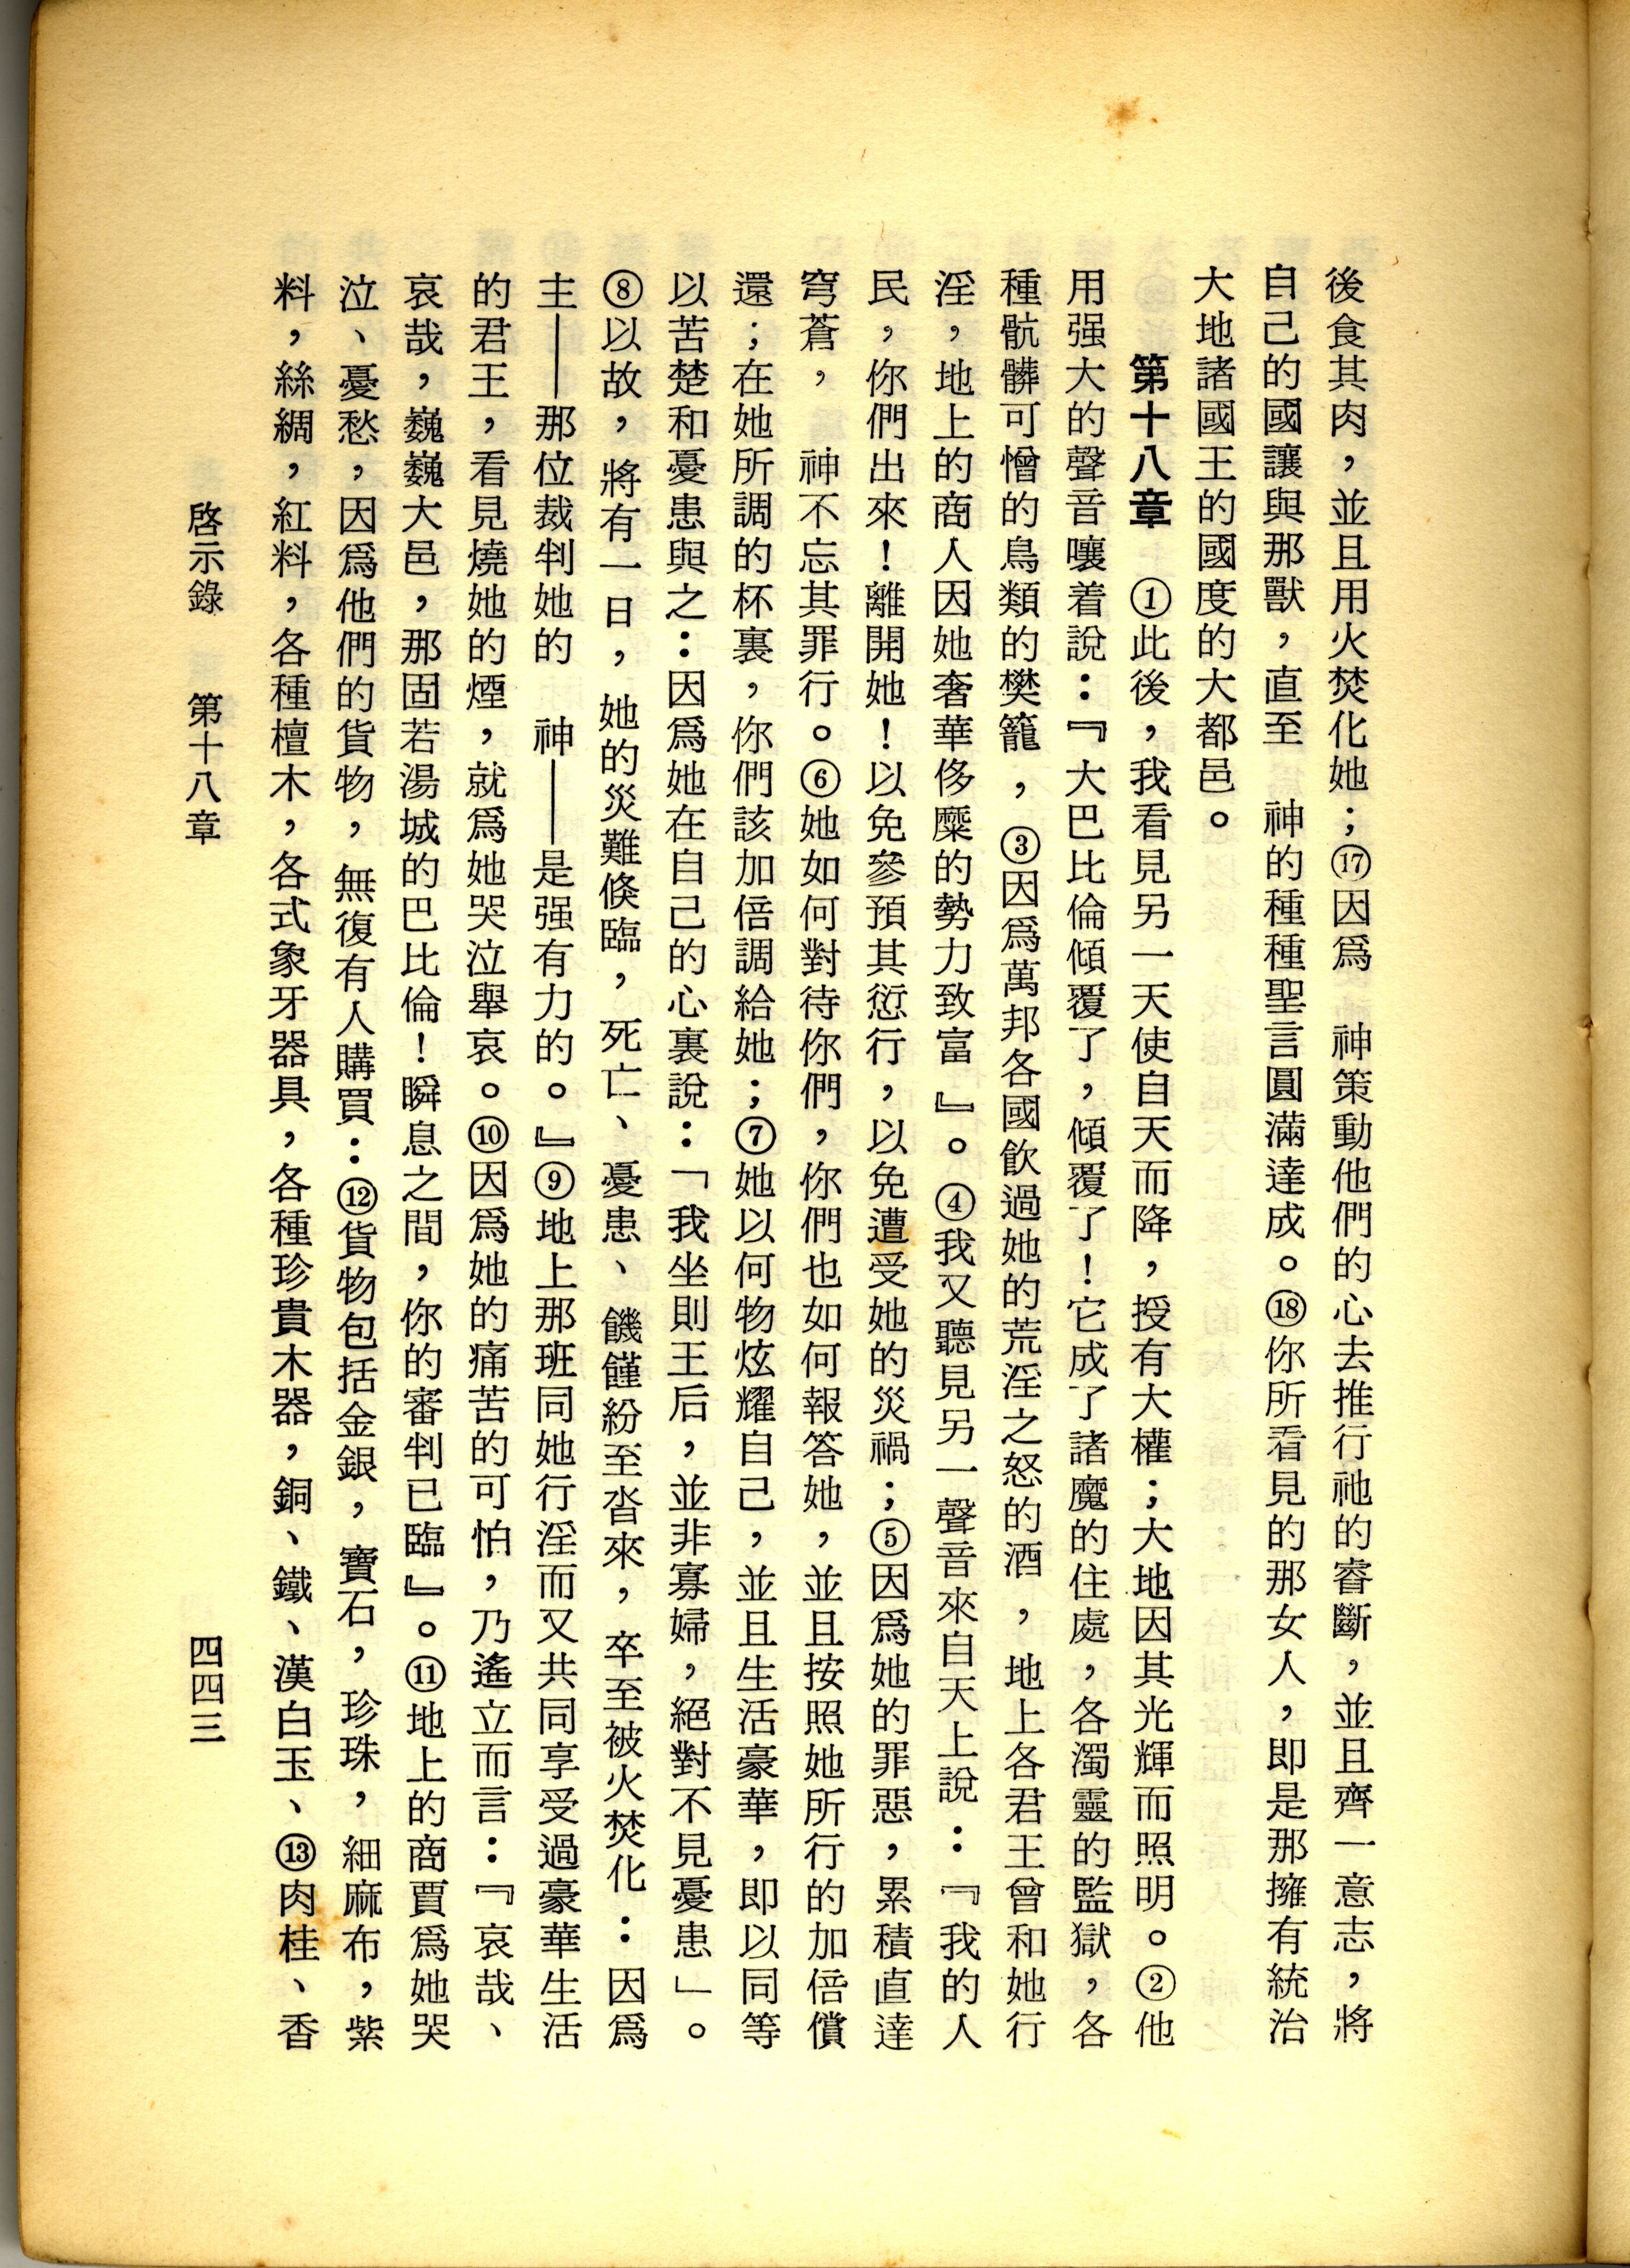 後食其肉，並且用火焚化她；⑰因爲　神策動他們的心去推行祂的睿斷，並且齊一意志，將
自己的國讓與那獸，直至　神的種種聖言圓滿達成。⑱你所看見的那女人，即是那擁有統治
大地諸國王的國度的大都邑。
第十八章　①此後，我看見另一天使自天而降，授有大權；大地因其光輝而照明。②他
用强大的聲音嚷着說：『大巴比倫傾覆了，傾覆了！它成了諸魔的住處，各濁靈的監獄，各
種骯髒可憎的鳥類的樊籠，③因爲萬邦各國飲過她的荒淫之怒的酒，地上各君王曾和她行
淫，地上的商人因她奢華侈糜的勢力致富』。④我又聽見另一聲音來自天上說：『我的人
民，你們出來！離開她！以免參預其愆行，以免遭受她的災禍；⑤因爲她的罪惡，累積直達
穹蒼，　神不忘其罪行。⑥她如何對待你們，你們也如何報答她，並且按照她所行的加倍償
還；在她所調的杯裏，你們該加倍調給她；⑦她以何物炫耀自己，並且生活豪華，即以同等
以苦楚和憂患與之：因爲她在自己的心裏說：「我坐則王后，並非寡婦，絕對不見憂患」。
⑧以故，將有一日，她的災難倏臨，死亡、憂患、饑饉紛至沓來，卒至被火焚化：因爲
主——那位裁判她的　神——是强有力的。』⑨地上那班同她行淫而又共同享受過豪華生活
的君王，看見燒她的煙，就爲她哭泣舉哀。⑩因爲她的痛苦的可怕，乃遙立而言：『哀哉、
哀哉，巍巍大邑，那固若湯城的巴比倫！瞬息之間，你的審判已臨』。⑪地上的商賈爲她哭
泣、憂愁，因爲他們的貨物，無復有人購買：⑫貨物包括金銀，寶石，珍珠，細麻布，紫
料，絲綢，紅料，各種檀木，各式象牙器具，各種珍貴木器，銅、鐵、漢白玉、⑬肉桂、香
啓示錄　第十八章　四四三